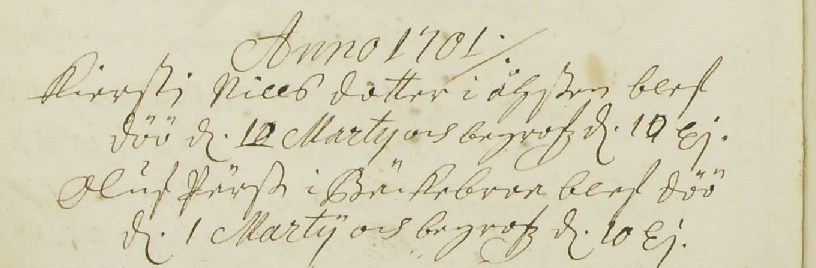 Anno 1701.
Kiersti Niels dotter i ölsten blef
döö d. 10 Martij och begrofz d. 10 Ej.
Oluf Pärß i Bäckebroe blef döö
d. 1 Martij och begrofz d. 10 Ej.